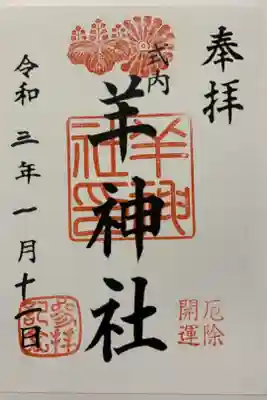 奉拝
式内
羊神社
羊神社印
厄除
開運
令和三年一月十二日
参拝
記念